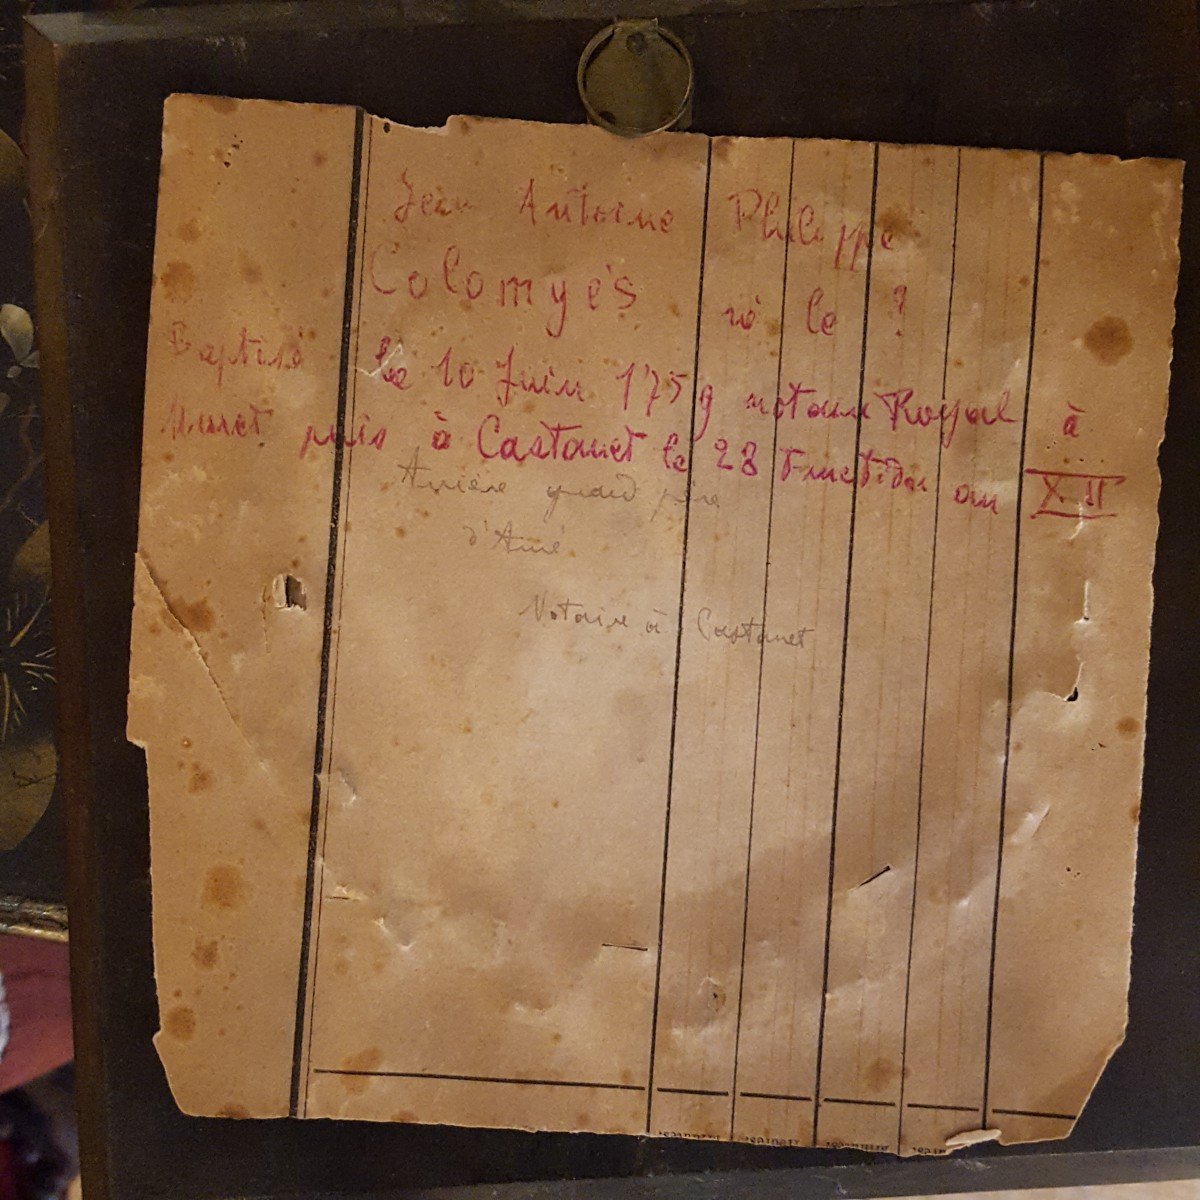 Jean Antoine Philippe
Colomyès né le ?
Baptisé le 10 Juin 1759 notaire Royal à
Muret puis à Castanet le 28 Fructidor an XII
Arrière grand père
d'Aimé
Notaire à Castanet